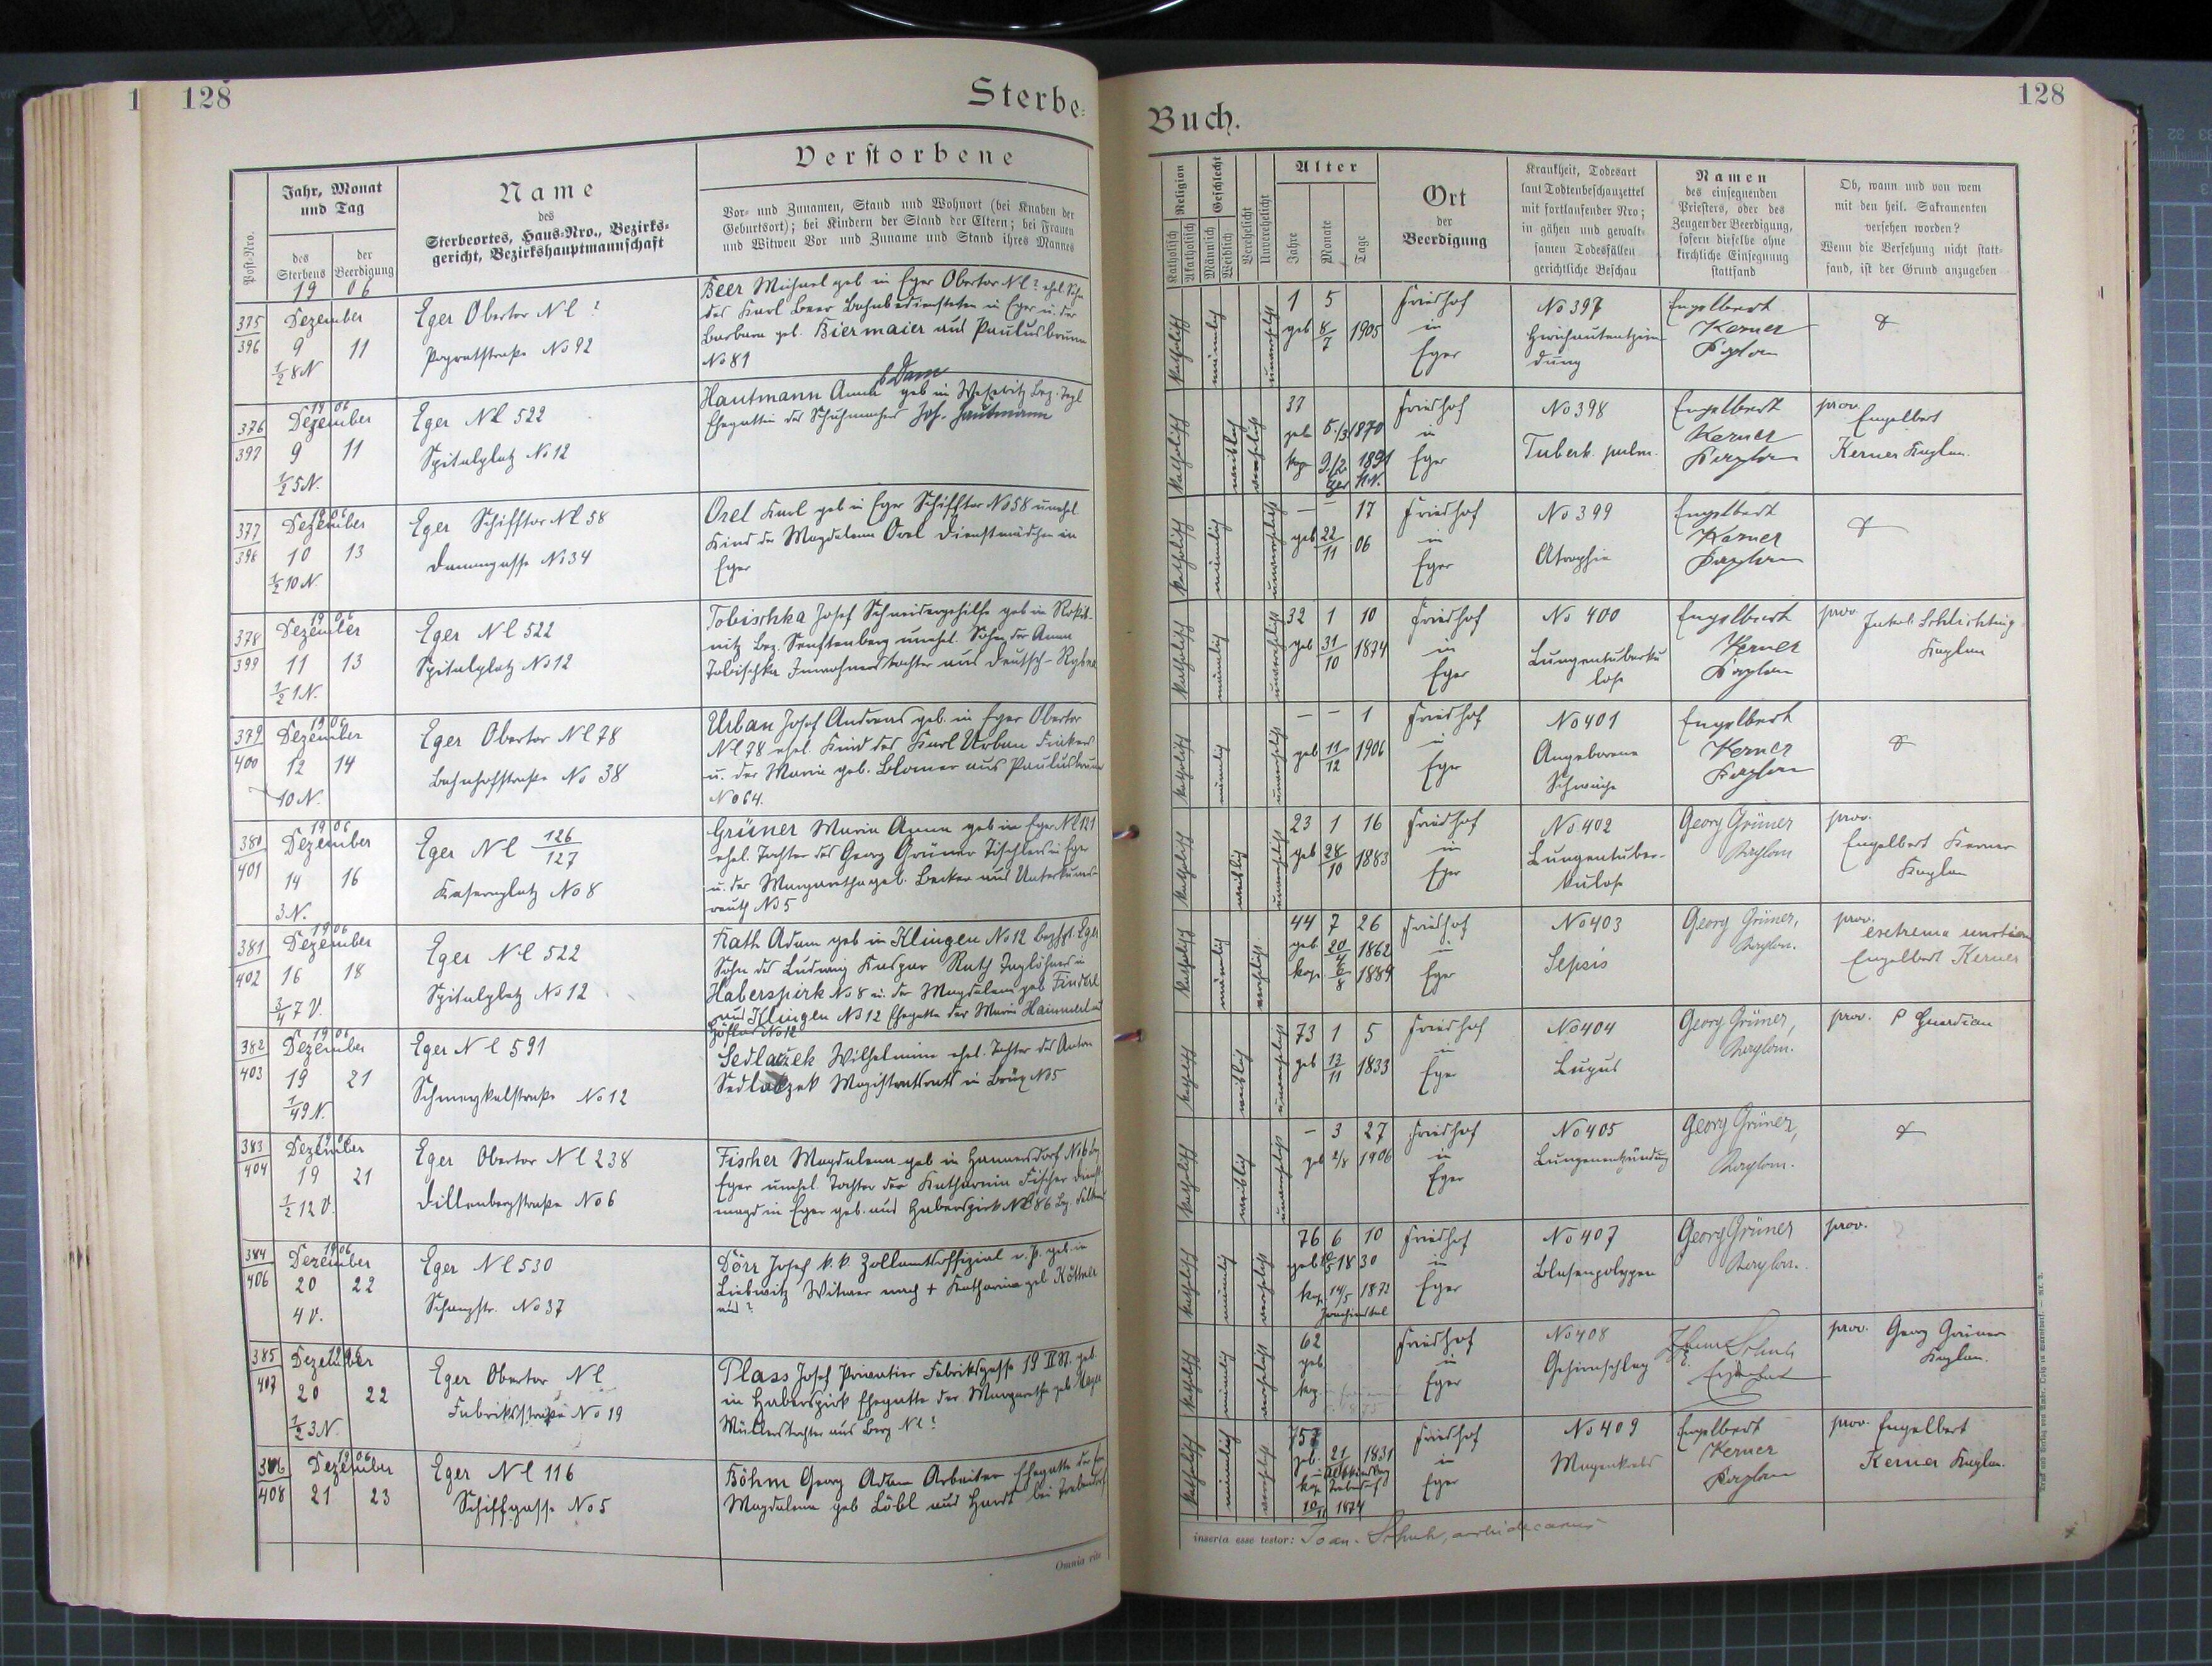 1 128
Sterbe-
Jahr, Monat
und Tag
Name
des
Sterbeortes, Haus-Nro., Bezirks-
gericht, Bezirkshauptmannschaft
Verstorbene
Vor- und Zunamen, Stand und Wohnort (bei Knaben der
Geburtsort); bei Kindern der Stand der Eltern; bei Frauen
und Witwen Vor und Zuname und Stand ihres Mannes
Post-Nro.
des
Sterbens
der
Beerdigung
19 06
375
396
Dezember
9 11
1/2 8 N
Eger Obertor Nc ?
No 92
Beer Michael geb in Eger Obertor Nc ? ehel Sohn
des Karl Beer Bahnbediensteten in Eger u. der
Barbara geb. Biermaier aus Paulusbrunn
No 81
376
397
1906
Dezember
9 11
1/2 5 N.
Eger Nc 522
Spitalplatz No 12
Hautmann Anna geb in
Ehegattin des Schuhmachers Joh. Hautmann
377
398
1906
Dezember
10 13
1/2 10 N.
Eger Schifftor Nc 58
Dammgasse No 34
Orel Karl geb in Eger Schifftor No 58 unehl
Kind der Magdalena Orel Dienstmädchen in
Eger
378
399
1906
Dezember
11 13
1/2 1 N.
Eger Nc 522
Spitalplatz No 12
Tobischka Josef Schneidergehilfe geb in Rokit-
nitz Bez. Senftenberg unehel. Sohn der Anna
Tobischka Inwohnerstochter aus Deutsch-Rybna
379
400
1906
Dezember
12 14
10 N.
Eger Obertor Nc 78
Bahnhofstraße No 38
Urban Josef Andreas geb. in Eger Obertor
Nc 78 ehel. Kind des Karl Urban
u. der Maria geb. Blomer aus Paulusbrunn
No 64.
380
401
1906
Dezember
14 16
3 N.
Eger Nc 126/127
Kasernplatz No 8
Grüner Maria Anna geb in Eger Nc 121
ehel. Tochter des Georg Grüner Tischlers in Eger
u. der Margaretha geb. Becker aus Unterkuns-
reuth No 5
381
402
1906
Dezember
16 18
3/4 7 V.
Eger Nc 522
Spitalplatz No 12
Rath Adam geb in Klingen No 12 Eger
Sohn des Ludwig Kaspar Rath Taglöhners in
Haberspirk No 8 u. der Magdalena geb
aus Klingen No 12 Ehegatte der Maria
No 12
382
403
1906
Dezember
19 21
1/4 9 N.
Eger Nc 591
Schmeykalstraße No 12
Sedlaczek Wilhelmine ehel. Tochter des Anton
Sedlaczek Magistratsrats in Brüx No 5
383
404
1906
Dezember
19 21
1/2 12 V.
Eger Obertor Nc 238
Dillenbergstraße No 6
Fischer Magdalena geb in No 6
Eger unehel. Tochter der Katharina Fischer Dienst-
magd in Eger geb. aus Haberspirk Nc 86 Bez.
384
406
1906
Dezember
20 22
4 V.
Eger Nc 530
Schanzstr. No 37
Dörr Josef k. k. Zollamtsoffizial i. P. geb. in
Liebwitz Witwer nach + Katharina geb
aus ?
385
407
1906
Dezember
20 22
1/2 3 N.
Eger Obertor Nc
Fabriksstraße No 19
Plass Josef Privatier Fabriksgasse 19 II St. geb.
in Haberspirk Ehegatte der Margaretha geb
Müllerstochter aus Berg Nc ?
386
408
1906
Dezember
21 23
Eger Nc 116
Schiffgasse No 5
Böhm Georg Adam Arbeiter Ehegatte der
Magdalena geb Löbl aus Hardt bei
Omnia rite
128
Buch.
Religion
Katholisch
Akatholisch
Geschlecht
Männlich
Weiblich
Verehelicht
Unverehelicht
Alter
Jahre
Monate
Tage
Ort
der
Beerdigung
Krankheit, Todesart
laut Todtenbeschauzettel
mit fortlaufender Nro;
in gähen und gewalt-
samen Todesfällen
gerichtliche Beschau
Namen
des einsegnenden
Priesters, oder des
Zeugen der Beerdigung,
sofern dieselbe ohne
kirchliche Einsegnung
stattfand
Ob, wann und von wem
mit den heil. Sakramenten
versehen worden?
Wenn die Versehung nicht statt-
fand, ist der Grund anzugeben
katholisch
männlich
unverehelicht
1 5
geb 8/7 1905
Friedhof
in
Eger
No 397
Hirnhautentzün-
dung
Engelbert
Kerner
Kaplan
katholisch
weiblich
verehelicht
37
geb 5./3 1870
kop 9/2 1891
Eger
Friedhof
in
Eger
No 398
Tuberk. pulm.
Engelbert
Kerner
Kaplan
prov.
Engelbert
Kerner Kaplan.
katholisch
männlich
unverehelicht
– – 17
geb 22/11 06
Friedhof
in
Eger
No 399
Atrophie
Engelbert
Kerner
Kaplan
katholisch
männlich
unverehelicht
32 1 10
geb 31/10 1874
Friedhof
in
Eger
No 400
Lungentuberku
lose
Engelbert
Kerner
Kaplan
prov.
Jakob Schlichting
Kaplan
katholisch
männlich
unverehelicht
– – 1
geb 11/12 1906
Friedhof
in
Eger
No 401
Angeborene
Schwäche
Engelbert
Kerner
Kaplan
katholisch
weiblich
unverehelicht
23 1 16
geb 28/10 1883
Friedhof
in
Eger
No 402
Lungentuber-
kulose
Georg Grüner
Kaplan
prov.
Engelbert Kerner
Kaplan
katholisch
männlich
verehelicht
44 7 26
geb. 20/4 1862
kop. 6/8 1889
Friedhof
in
Eger
No 403
Sepsis
Georg Grüner,
Kaplan.
prov.
extrema unction
Engelbert Kerner
katholisch
weiblich
unverehelicht
73 1 5
geb 13/11 1833
Friedhof
in
Eger
No 404
Lupus
Georg Grüner,
Kaplan.
prov. P Guardian
katholisch
weiblich
unverehelicht
– 3 27
geb 2/8 1906
Friedhof
in
Eger
No 405
Lungenentzündung
Georg Grüner,
Kaplan.
katholisch
männlich
verehelicht
76 6 10
geb 10/5 1830
kop. 14/5 1872
Joachimstal
Friedhof
in
Eger
No 407
Blasenpolypen
Georg Grüner
Kaplan.
prov.
katholisch
männlich
verehelicht
62
geb
kop.
Friedhof
in
Eger
No 408
Gehirnschlag
Schuh
prov. Georg Grüner
Kaplan.
katholisch
männlich
verehelicht
75
geb. 21 1831
kop.
10/11 1874
Friedhof
in
Eger
No 409
Magenkrebs
Engelbert
Kerner
Kaplan
prov. Engelbert
Kerner Kaplan.
inserta esse testor: Joan. Schuh, archidecanus